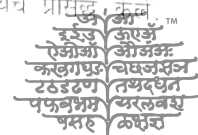 अ आ TM
इईउ ऊएॲ
ऐओऑ औअंअः
कखगघङ चछजझञ
टठडढण तथदधन
पफबभम यरलवश
षसह ळक्षज्ञ